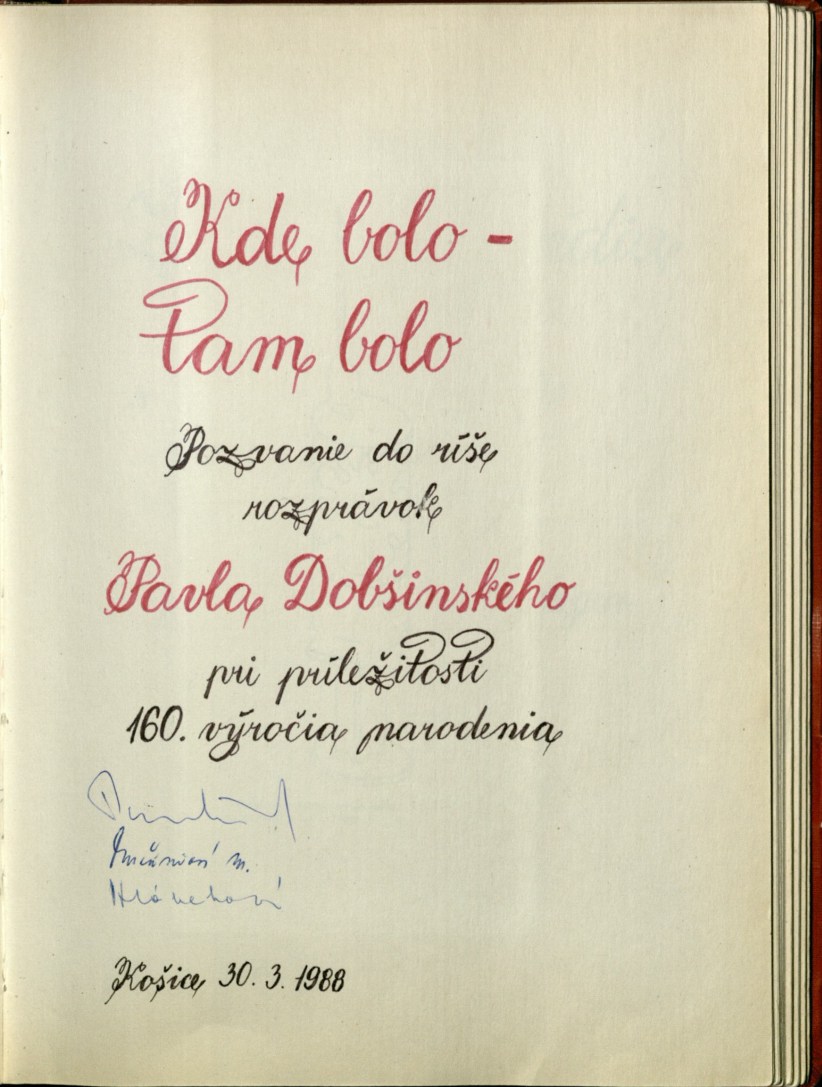 Kde bolo -
tam bolo
Pozvanie do ríše
rozprávok
Pavla Dobšinského
pri príležitosti
160. výročia narodenia
Košice 30. 3. 1988